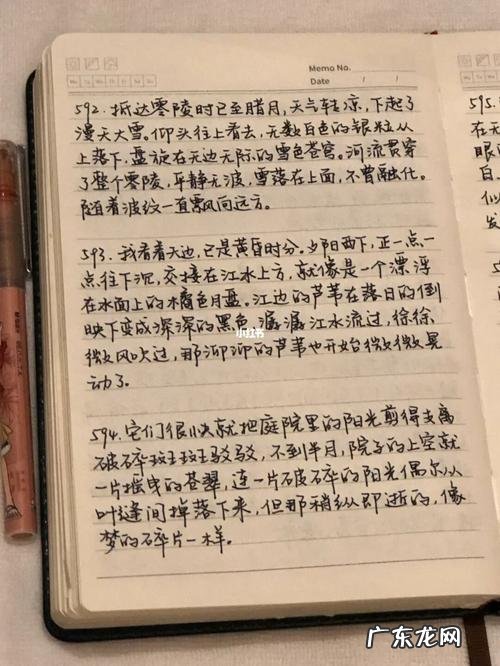 Memo No.
Mo Tu We Th Fr Sa Su
Date / /
592. 抵达零陵时已至腊月,天气转凉,下起了
漫天大雪。仰头往上看去,无数白色的银粒从
上落下,盘旋在无边无际的雪色苍穹。河流贯穿
了整个零陵,平静无波,雪落在上面,不曾融化。
随着波纹一直飘向远方。
593. 我看着天边,已是黄昏时分。夕阳西下,正一点一
点往下沉,交接在江水上方,就像是一个漂浮
在水面上的橘色月盘。江边的芦苇在落日的倒
映下变成深深的黑色,潺潺江水流过,徐徐
微风吹过,那沏沏的芦苇也开始微微晃
动了。
小红书
594. 它们很快就把庭院里的阳光剪得支离
破碎斑斑驳驳,不到半月,院子的上空就
一片摇曳的苍翠,连一片破碎的阳光偶尔从
叶缝间掉落下来,但那稍纵即逝的,像
梦的碎片一样。
595.
在无
眼
白
似
发
广东龙网